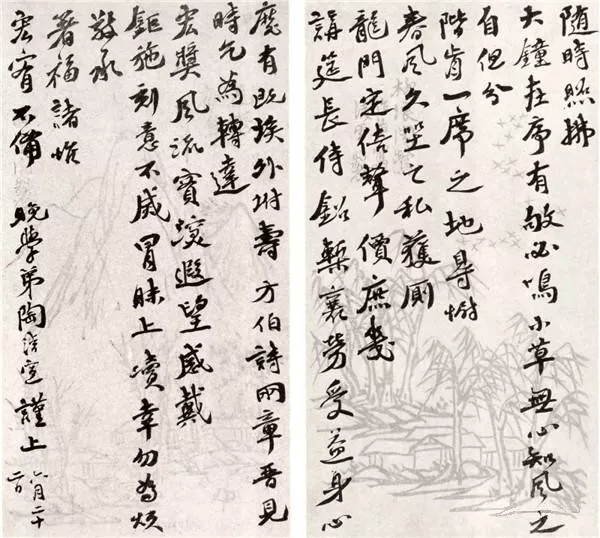 随時照拂
大鐘在序有敂必鳴小草無心知風之
自但分
階前一席之地得慰
春風久坐之私獲厠
龍門定倍聲價庶幾
講筵長侍鉛槧襄勞受益身心
靡有既挨外坿壽方伯詩兩章晉見
時乞為轉達
宏奬風流賓筵遐望感戴
鉅施刻意不感冒昧上瀆幸勿為煩
敬承
著福諸惟
宏宥不備 晚學弟陶濬宣謹上 六月二十
二日